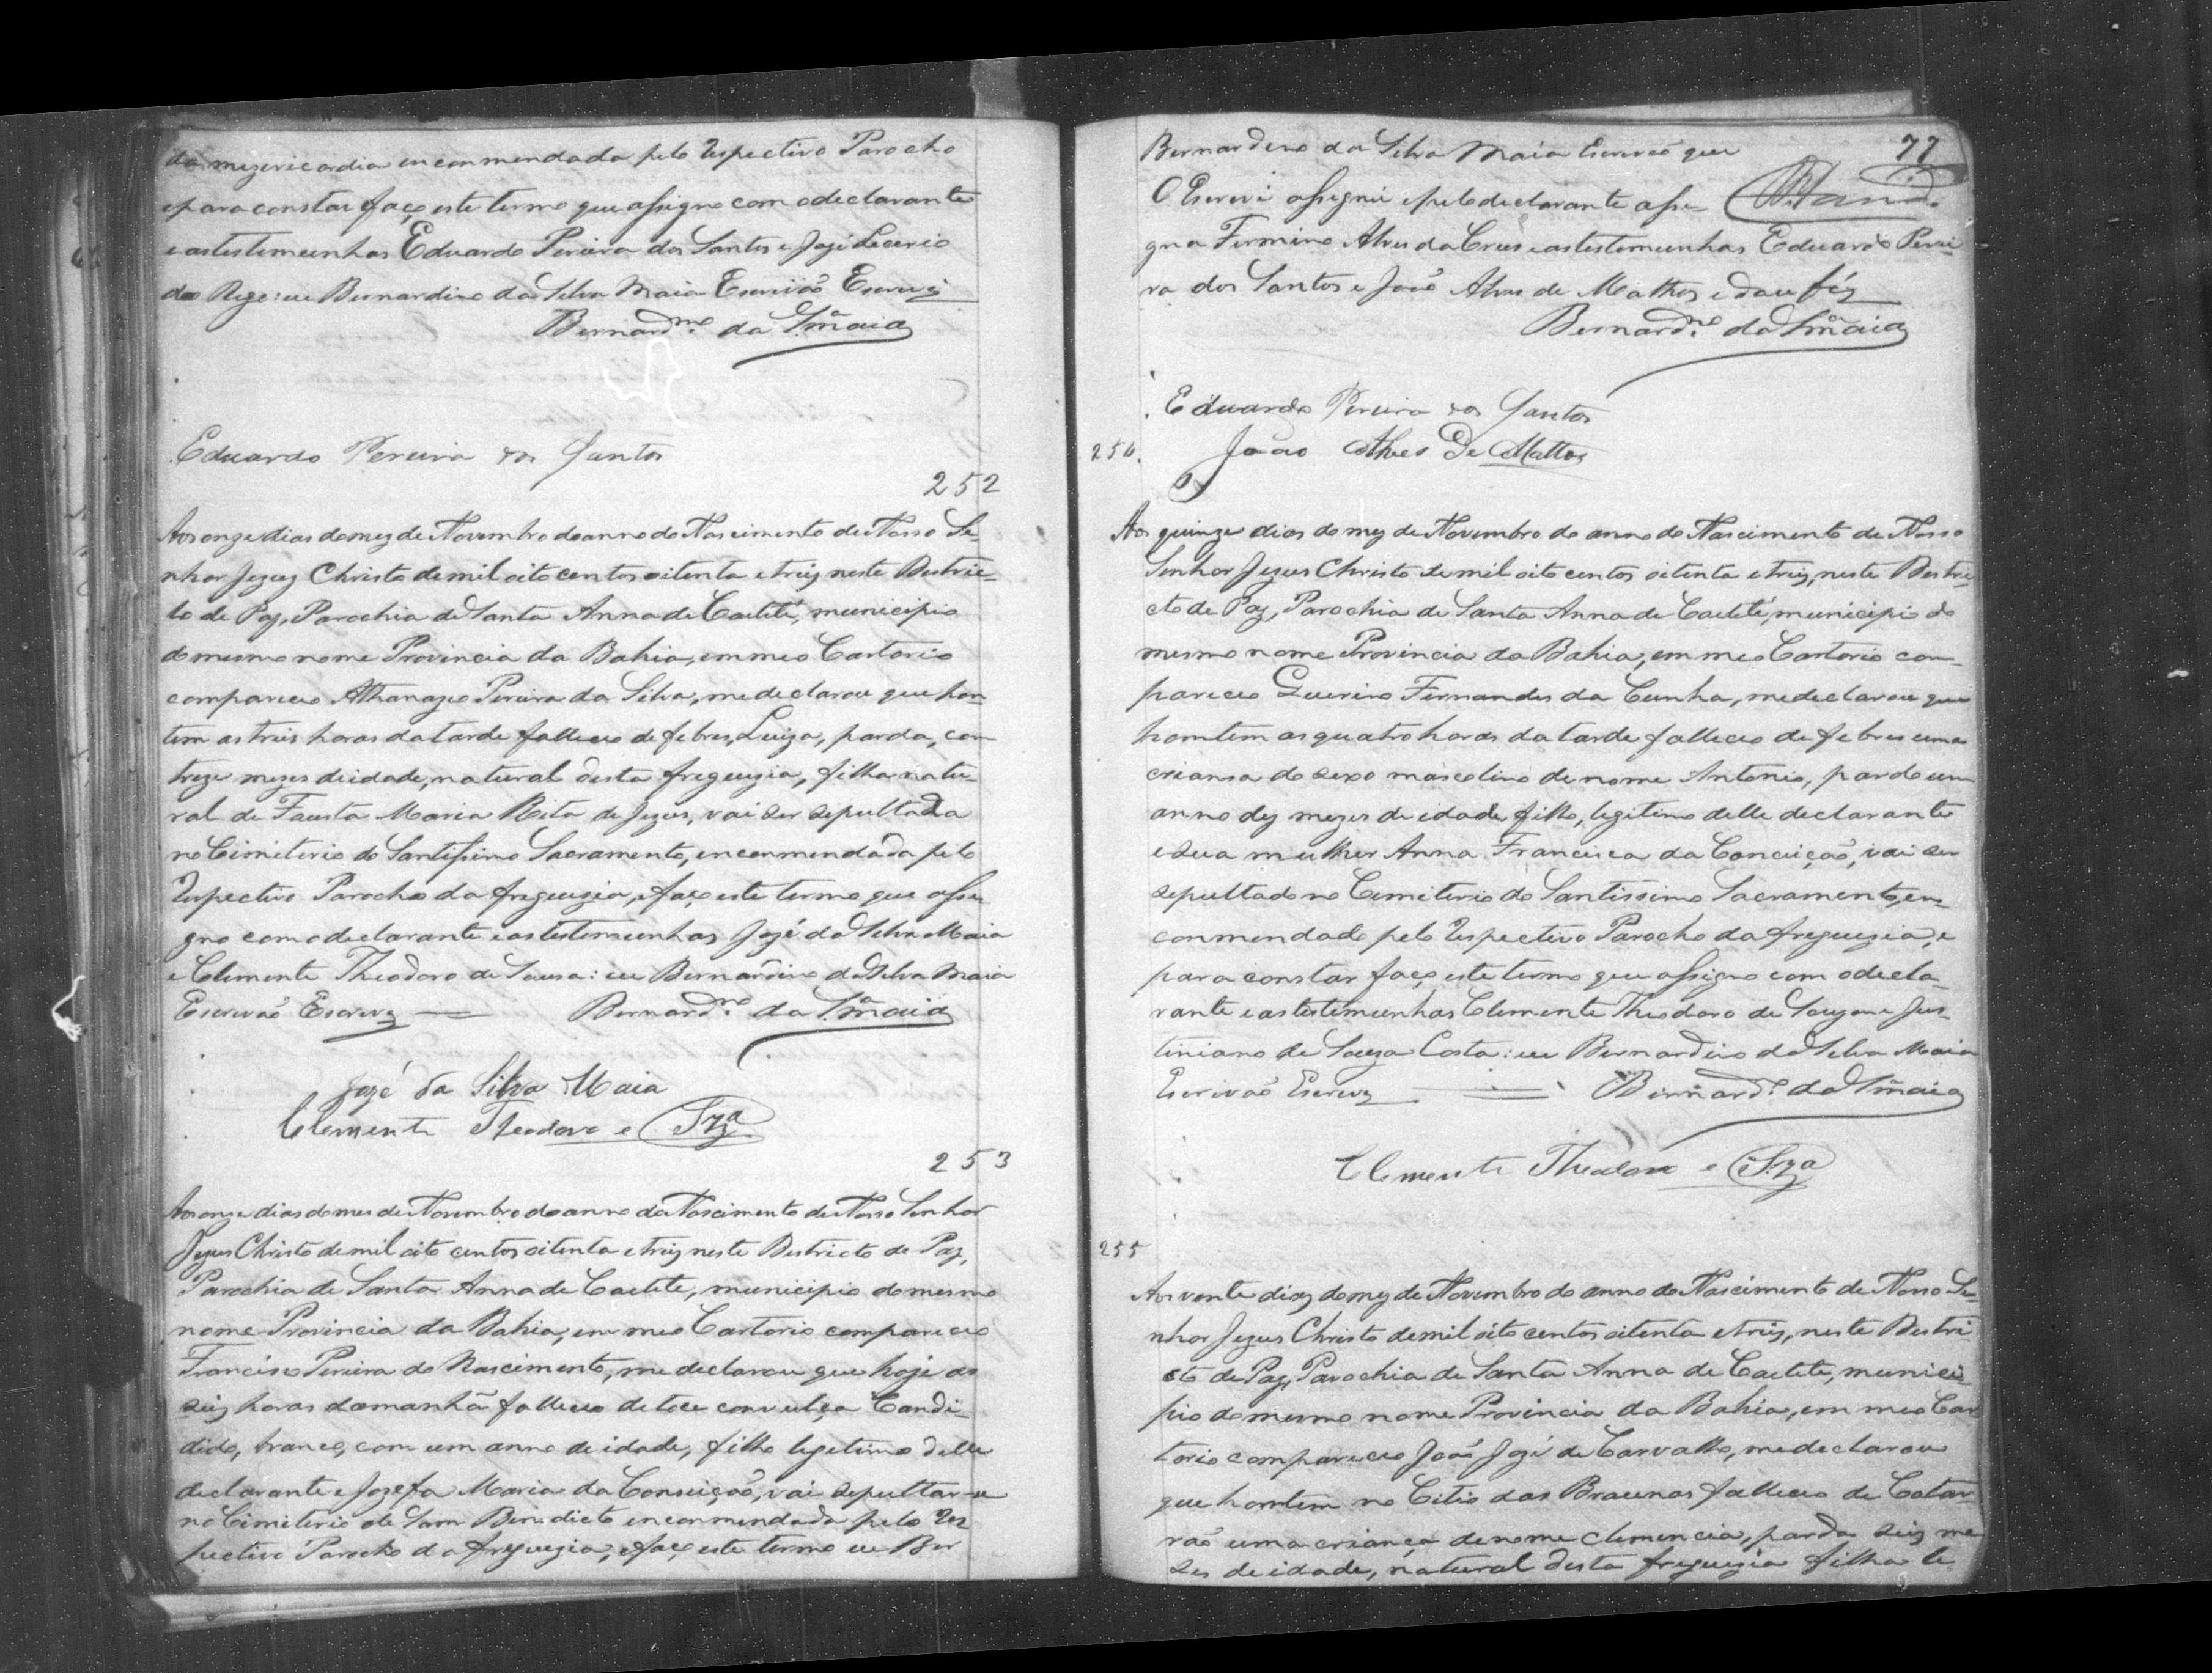 da mizericordia enconmendada pelo Respectivo Parocho
e para constar faço este termo que assigno com o declarante
e as testemunhas Eduardo Pereira dos Santos e José
do Rego: eu Bernardino da Silva Maia Escrivaõ Escrevy
Bernardno da Sa Maia
Eduardo Pereira dos Santos
252
Aos onze dias do mez de Novembro do anno do Nascimento de Nosso Se-
nhor Jezuz Christo de mil oito centos oitenta e treis neste Destric-
to de Paz, Parochia de Santa Anna de Caetité, municipio
do mesmo nome Provincia da Bahia, em meo Cartorio
compareceo Athanazio Pereira da Silva, me declarou que hon-
tem as treis horas da tarde falleceo de febres, Luiza, parda, com
treze mezes de idade, natural desta freguezia, filha natu-
ral de Fausta Maria Rita de Jezus, vai ser sepultada
no Cimiterio do Santissimo Sacramento, enconmendada pelo
Respectivo Parocho da freguezia, e faço este termo que assi
gno com o declarante e as testemunhas José da Silva Maia
e Clemente Theodoro de Sousa: eu Bernardino da Silva Maia
Escrivaõ Escrevy Bernardno da Sa Maia
Jozé da Silva Maia
Clemente Theodoro e Sza
253
Aos onze dias do mes de Novembro do anno do Nascimento de Nosso Senhor
Jezus Christo de mil oito centos oitenta e treiz neste Destricto de Paz,
Parochia de Santa Anna de Caetete, municipio do mesmo
nome Provincia da Bahia, em meo Cartorio compareceo
Francisco Pereira do Nascimento, me declarou que hoje as
seiz horas da manhã falleceo de toce convulça Candi-
dido, branco, com um anno de idade, filho legitimo delle
declarante e Jozefa Maria da Conceiçaõ, vai sepultar-se
no Cimiterio de Sam Benedicto enconmendada pelo Res
pectivo Parocho da freguezia, e faço este termo eu Ber
77
Bernardino da Silva Maia Escrivaõ que
O Escrevi assignei e pelo declarante assi-
gna Firmino Alves da Crus e as testemunhas Eduardo Perei-
ra dos Santos e Joaõ Alves de Mathos e dou féz
Bernardno da Sa Maia
Eduardo Pereira dos Santos
254.
Joao Alves De Mattos
Aos quinze dias do mez de Novembro do anno do Nascimento de Nosso
Senhor Jezus Christo de mil oito centos oitenta e treiz, neste Destri-
cto de Paz, Parochia de Santa Anna de Caetité, municipio do
mesmo nome Provincia da Bahia, em meo Cartorio com-
pareceo Querino Fernandes da Cunha, me declarou que
homtem as quatro horas da tarde falleceo de febres uma
criansa do sexo mascolino de nome Antonio, pardo um
anno dez mezes de idade filho, legitimo delle declarante
e sua mulher Anna Francisca da Conceiçaõ, vai ser
sepultado no Cemiterio do Santissimo Sacramento, en-
conmendado pelo Respectivo Parocho da freguezia, e
para constar faço este termo que assigno com o decla-
rante e as testemunhas Clemente Theodoro de Souza e Jus-
tiniano de Souza Costa: eu Bernardino da Silva Maia
Escrivaõ Escrevy Bernardo da Sa Maia
Clemente Theodoro e Sza
255
Aos vente diaz do mez de Novembro do anno do Nascimento de Nosso Se-
nhor Jezus Christo de mil oito centos oitenta e treiz, neste Destri
cto de Paz, Parochia de Santa Anna de Caetete, munici-
pio do mesmo nome Provincia da Bahia, em meo Car
torio compareceo Joaõ José de Carvalho, me declarou
que homtem no Citio das Braunas falleceo de Catar-
raõ uma criança de nome Clemencia, parda seiz me
zes de idade, natural desta freguezia filha le